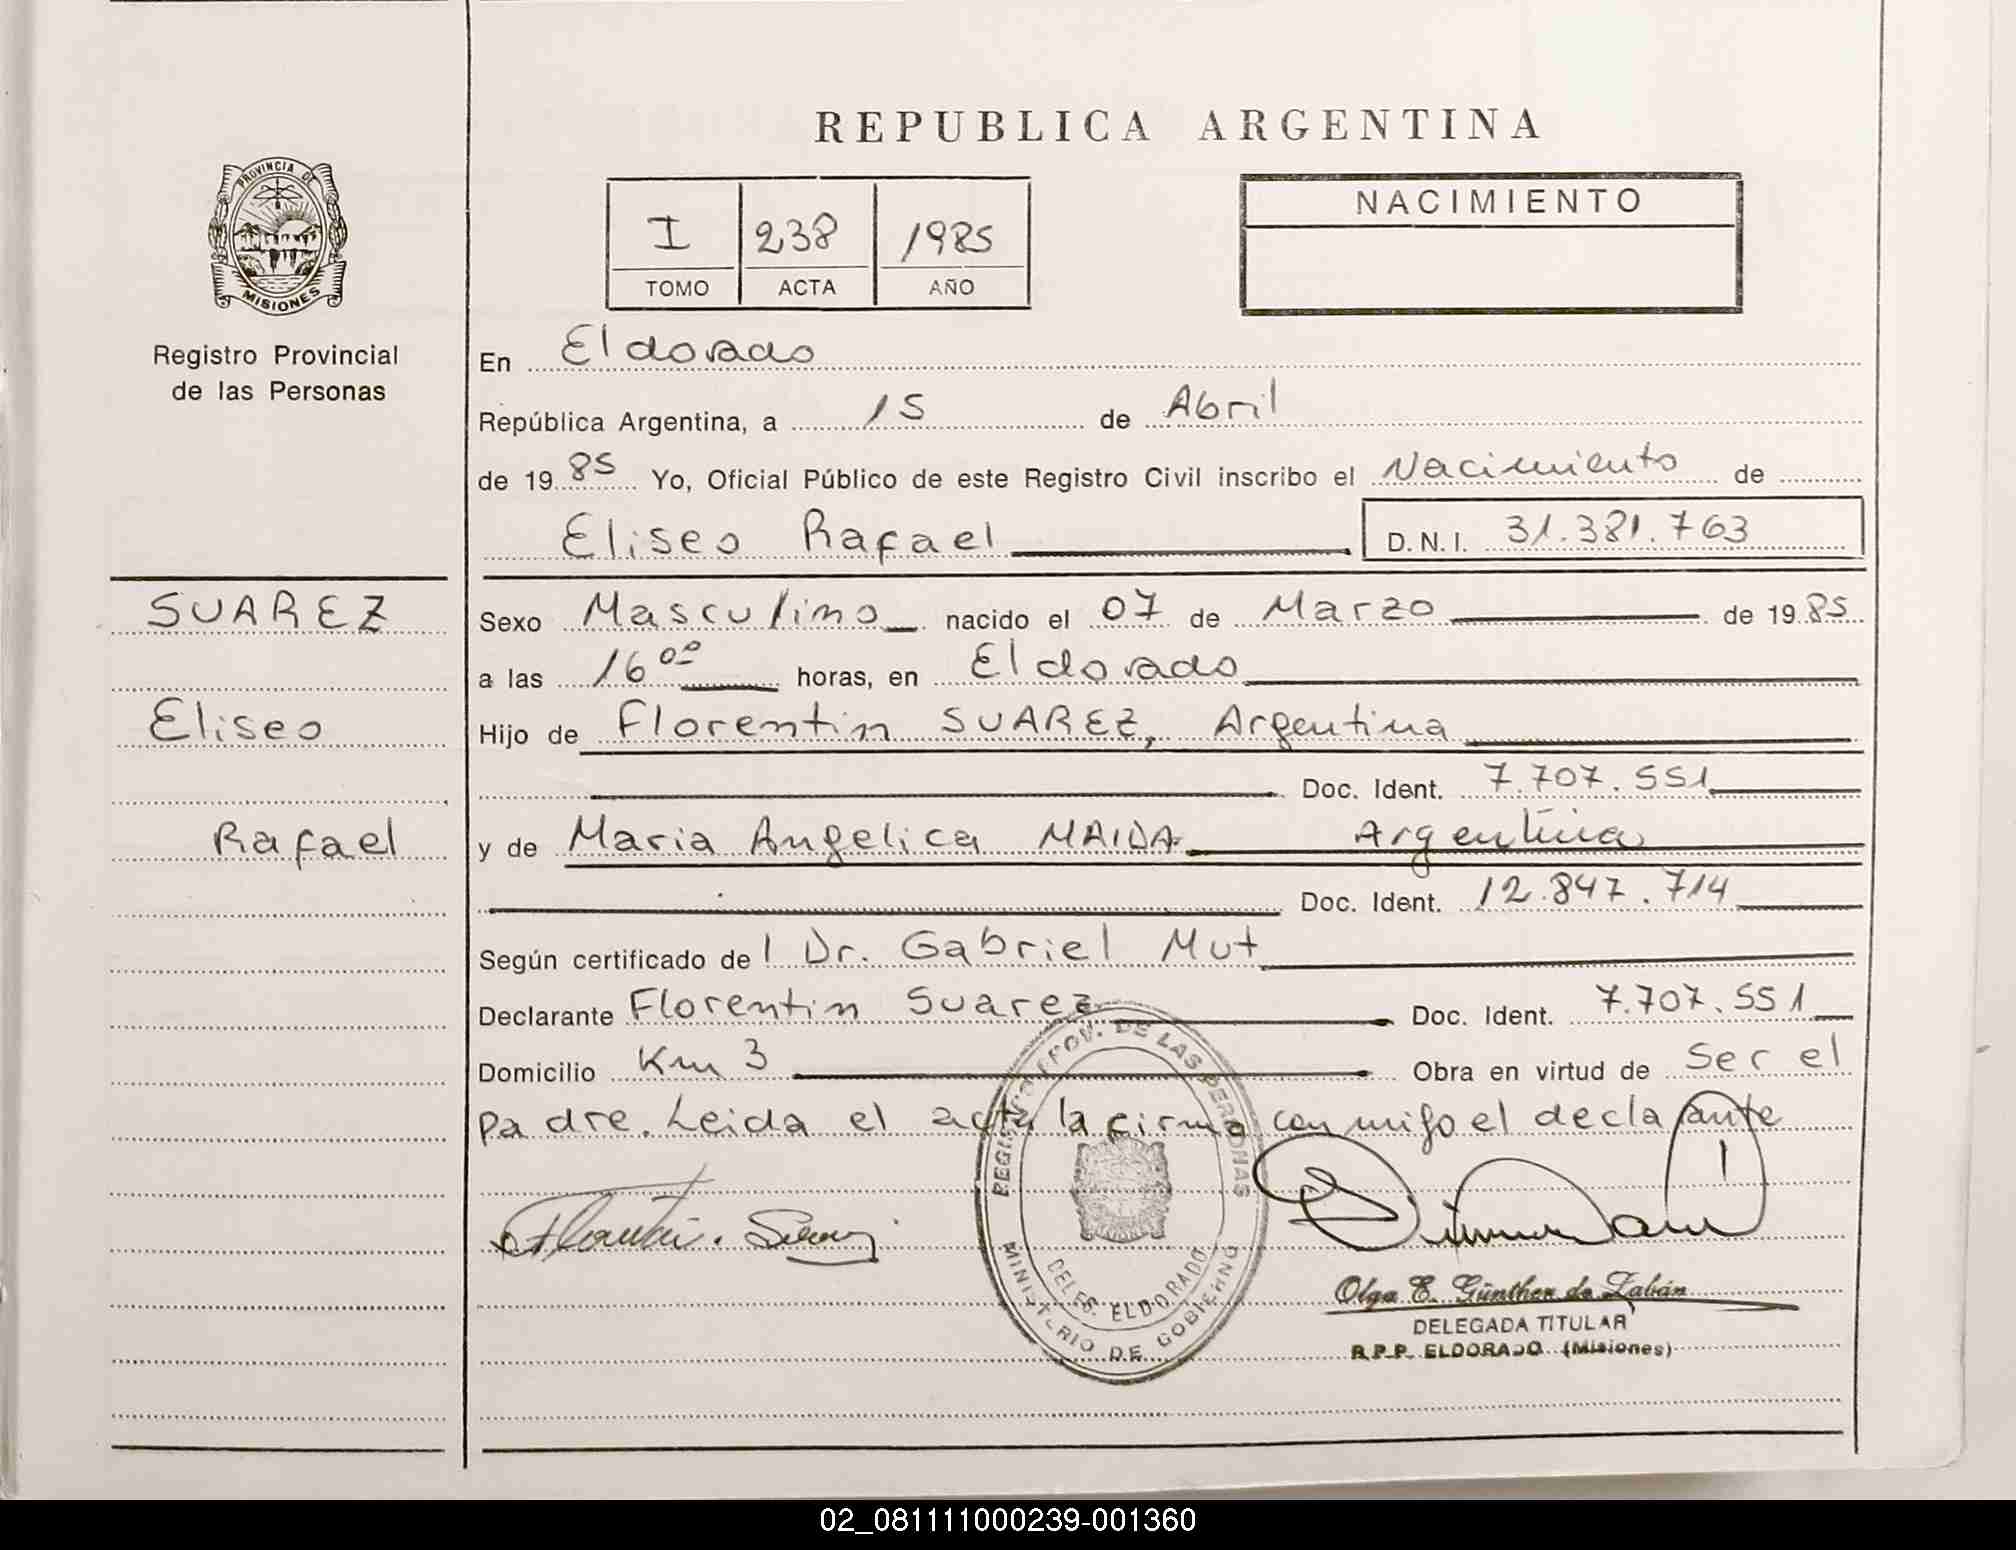 REPUBLICA ARGENTINA
PROVINCIA DE
MISIONES
Registro Provincial
de las Personas
I 238 1985
TOMO ACTA AÑO
NACIMIENTO
En Eldorado
República Argentina, a 15 de Abril
de 1985 Yo, Oficial Público de este Registro Civil inscribo el Nacimiento de
Eliseo Rafael D.N.I. 31.381.763
SUAREZ
Eliseo
Rafael
Sexo Masculino nacido el 07 de Marzo de 1985
a las 16 00 horas, en Eldorado
Hijo de Florentin SUAREZ, Argentina
Doc. Ident. 7.707.551
y de Maria Angelica MAIDA Argentina
Doc. Ident. 12.847.714
Según certificado del Dr. Gabriel Mut
Declarante Florentin Suarez Doc. Ident. 7.707.551
Domicilio Km 3 Obra en virtud de Ser el
padre. Leida el acta la firma conmigo el declarante
REGISTRO PROV. DE LAS PERSONAS
DELEG. ELDORADO
MINISTERIO DE GOBIERNO
Olga E. Günther de Zabán
DELEGADA TITULAR
R.P.P. ELDORADO (Misiones)
02_081111000239-001360